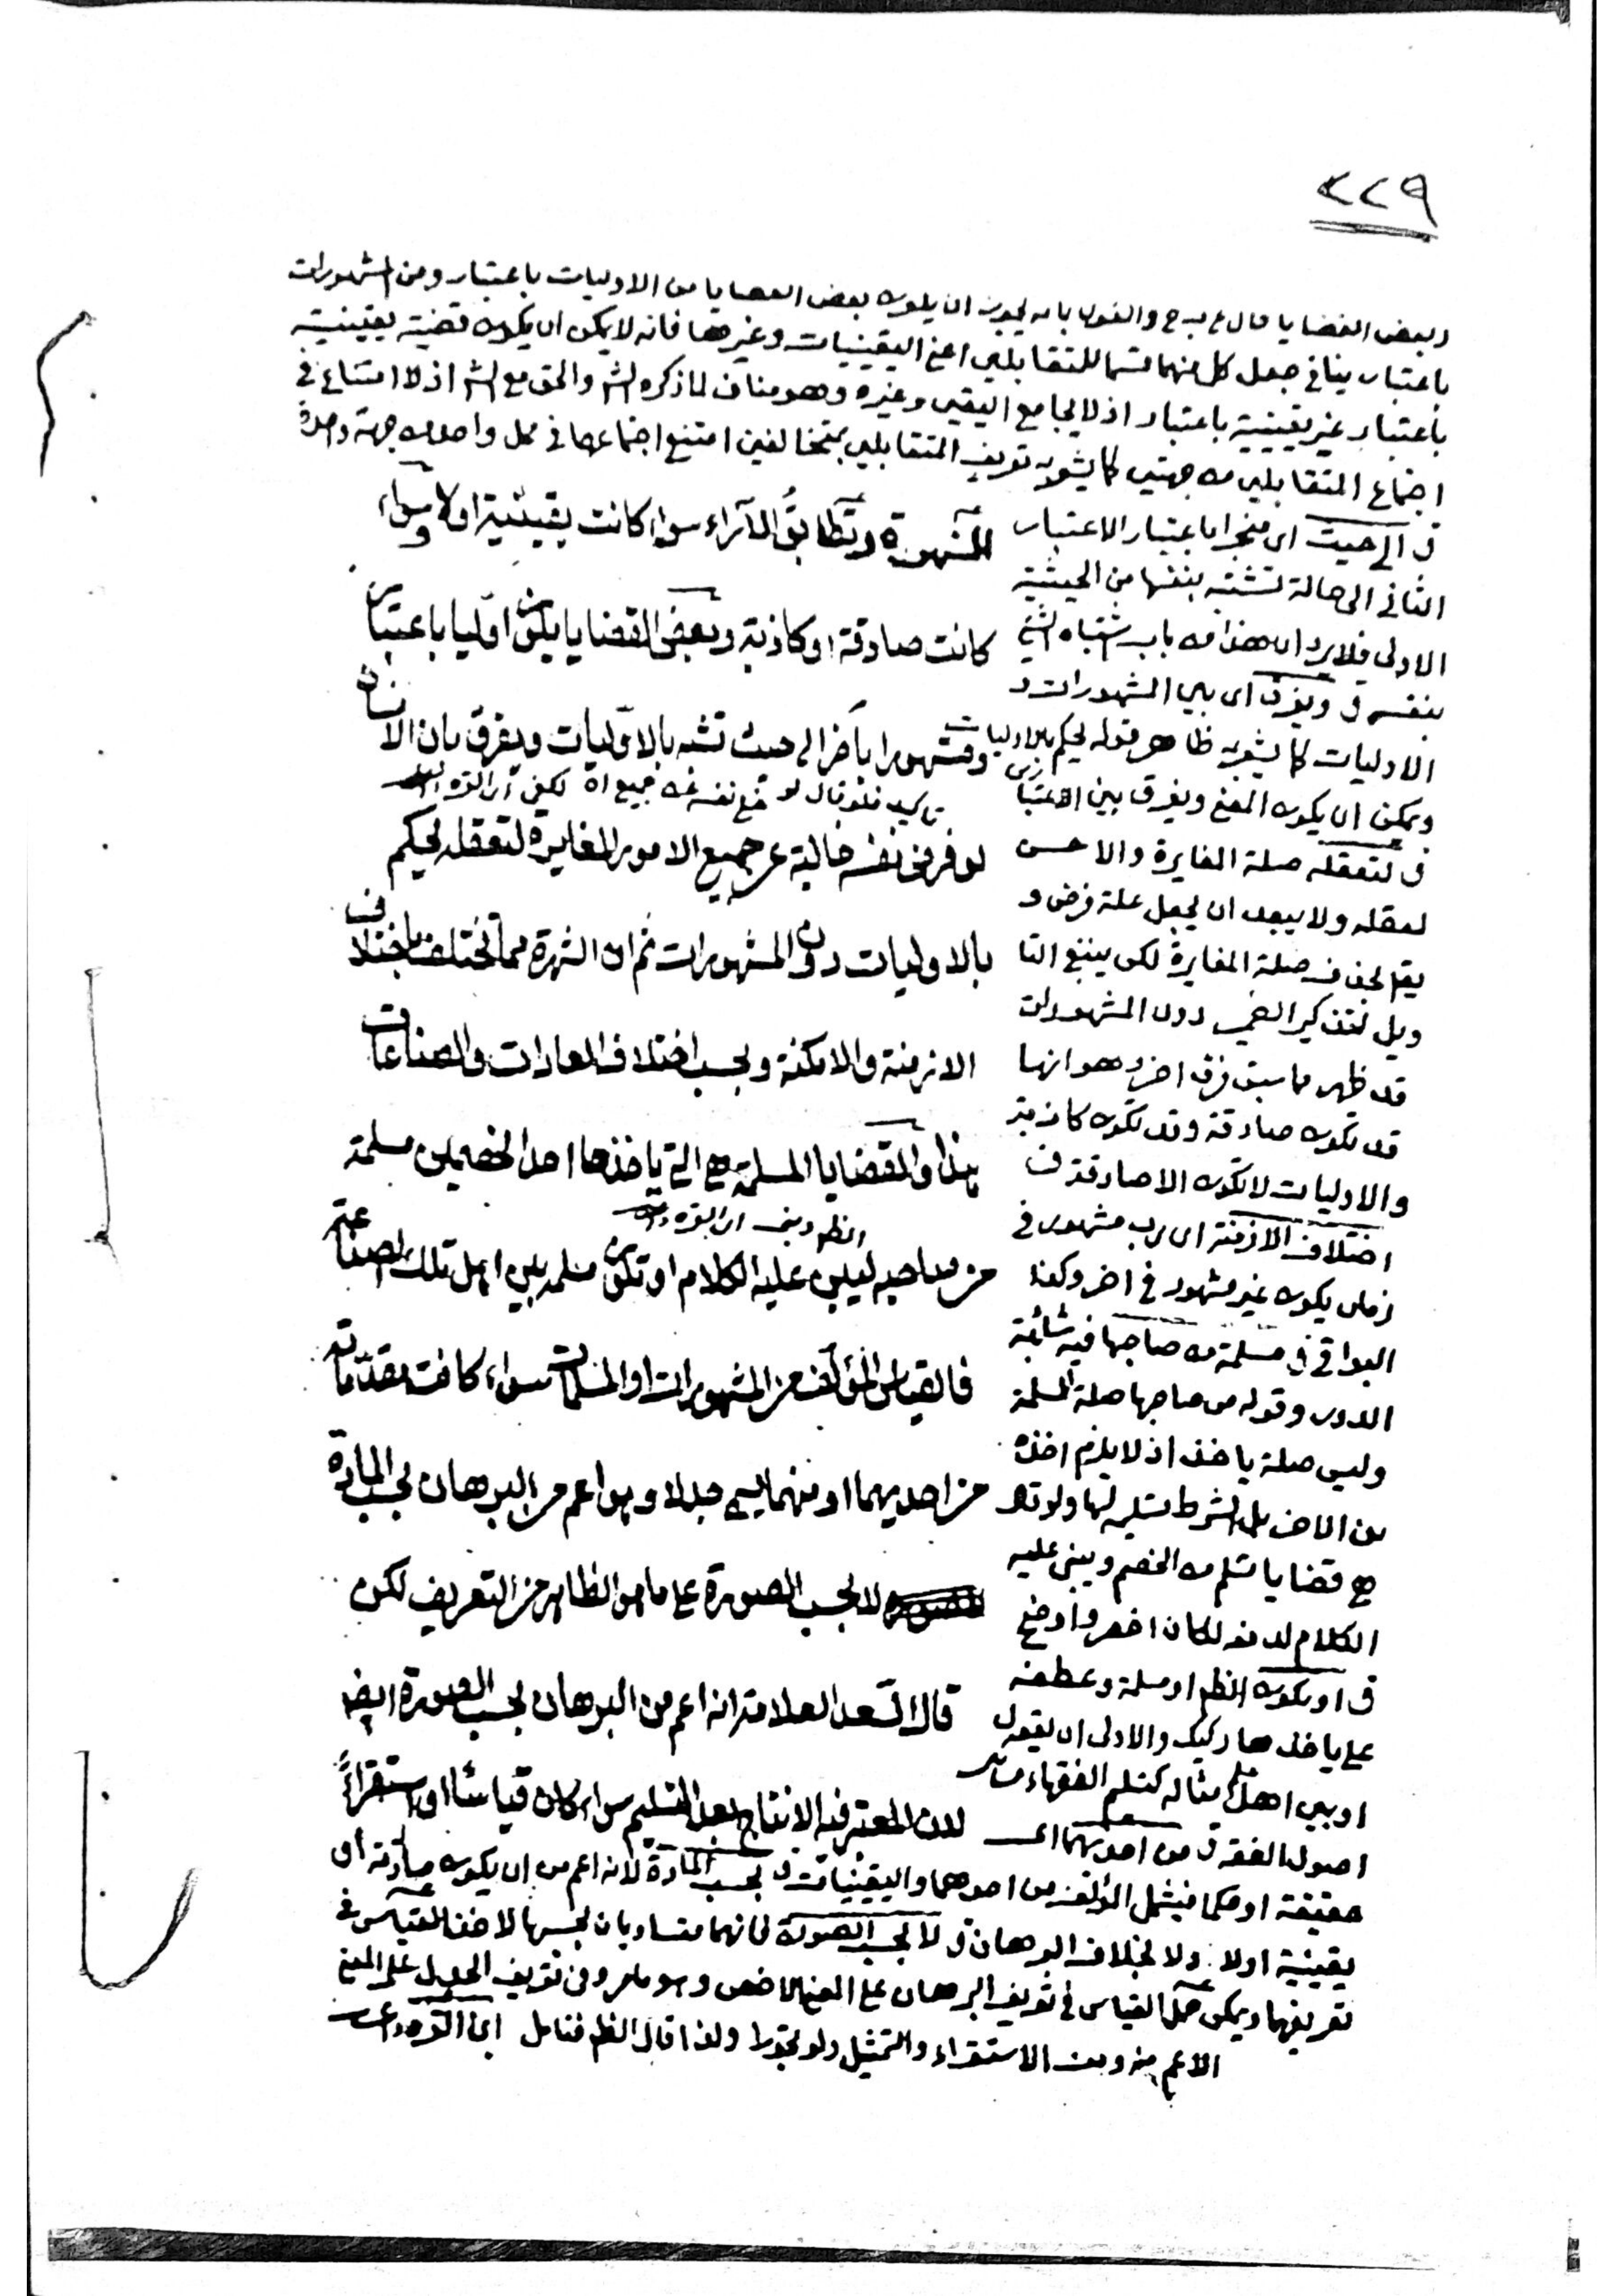 ٢٢٩
وبعض القضايا قال ع ب ح والقول بانه يجوز ان يكون بعض القضايا من الاوليات باعتبار ومن المشهورات
باعتبار ينافي جعل كل منهما قسما للمتقابلين اعني اليقينيات وغيرها فانه لا يمكن ان يكون قضية يقينية
باعتبار غير يقينية باعتبار اذ لا يجامع اليقين وغيره وهو مناف لما ذكره الش والحق مع الش اذ لا امتناع في
اجتماع المتقابلين من جهتين كما يشعر به تعريف المتقابلين بمتخالفين امتنع اجتماعهما في محل واحد من جهة واحدة
المشهورة وتطابق الآراء سواء كانت يقينية اولا وسواء
كانت صادقة او كاذبة وبعض القضايا يكون اوليا باعتبار
ومشهورا بآخر الى حيث تشتبه بالاوليات ويفرق بان الانسان
لو فرض نفسه خالية عن جميع الامور المغايرة لتعقله لحكم
بالاوليات دون المشهورات ثم ان الشهرة مما تختلف باختلاف
الازمنة والامكنة وبحسب اختلاف العادات والصناعات
هذا والقضايا المسلمة هي التي ياخذها احد الخصمين مسلمة
من صاحبه ليبني عليه الكلام او تكون مسلمة بين اهل تلك الصناعة
فالقياس المؤلف من المشهورات او المسلمات سواء كانت مقدماته
من احديهما او منهما يسمى جدلا وهو اعم من البرهان بحسب المادة
لا بحسب الصورة على ما هو الظاهر من التعريف لكن
قال السعد العلامة انه اعم من البرهان بحسب الصورة ايضا
لان المعتبر فيه الانتاج بحسب التسليم سواء كان قياسا او استقراءً
ق الى حيث اي منجرا باعتبار الاعتبار
الثاني الى حالة تشتبه بنفسها من الحيثية
الاولى فلا يرد ان هذا من باب اشتباه الشيء
بنفسه ق ويفرق اي بين المشهورات و
الاوليات كما يشعر به ظاهر قوله لحكم بالاوليات
ويمكن ان يكون المعنى ويفرق بين الاعتبارين
ق لتعقله صلة المغايرة والاحسن
لعقله ولا يبعد ان يجعل علة فرض و
يقدر بحذف صلة المغايرة لكن ينبغي التا
ويل لتذكير الضمير دون المشهورات
قد ظهر مما سبق فرق اخر وهو انها
قد تكون صادقة وقد تكون كاذبة
والاوليات لا تكون الا صادقة ق
اختلاف الازمنة اي رب مشهور في
زمان يكون غير مشهور في اخر وكذا
البواقي ق مسلمة من صاحبها فيه شائبة
الدور وقوله من صاحبها صلة المسلمة
وليس صلة ياخذ اذ لا يلزم اخذه
من الاخذ بل الشرط تسليمه لها ولو قال
هي قضايا تسلم من الخصم ويبنى عليه
الكلام لدفعه لكان اخصر واوضح
ق او يكون الظ او مسلمة وعطفه
على ياخذها ركيك والاولى ان يقول
او بين اهل مثاله كتسلم الفقهاء مسائل
اصول الفقه ق من احديهما اي
حقيقة او حكما فيشمل المؤلف من احدهما واليقينيات ق بحسب المادة لانه اعم من ان يكون صادقة او
يقينية اولا ولا بخلاف البرهان ق لا بحسب الصورة لانهما متساويان بحسبها لاخذ القياس في
تعريفهما ويمكن حمل القياس في تعريف البرهان على المعنى الاخص وهو ما مر وفي تعريف الجدل على المعنى
الاعم منه ومن الاستقراء والتمثيل ولو تجوزا ولذا قال الظ فتامل ابن القره داغي